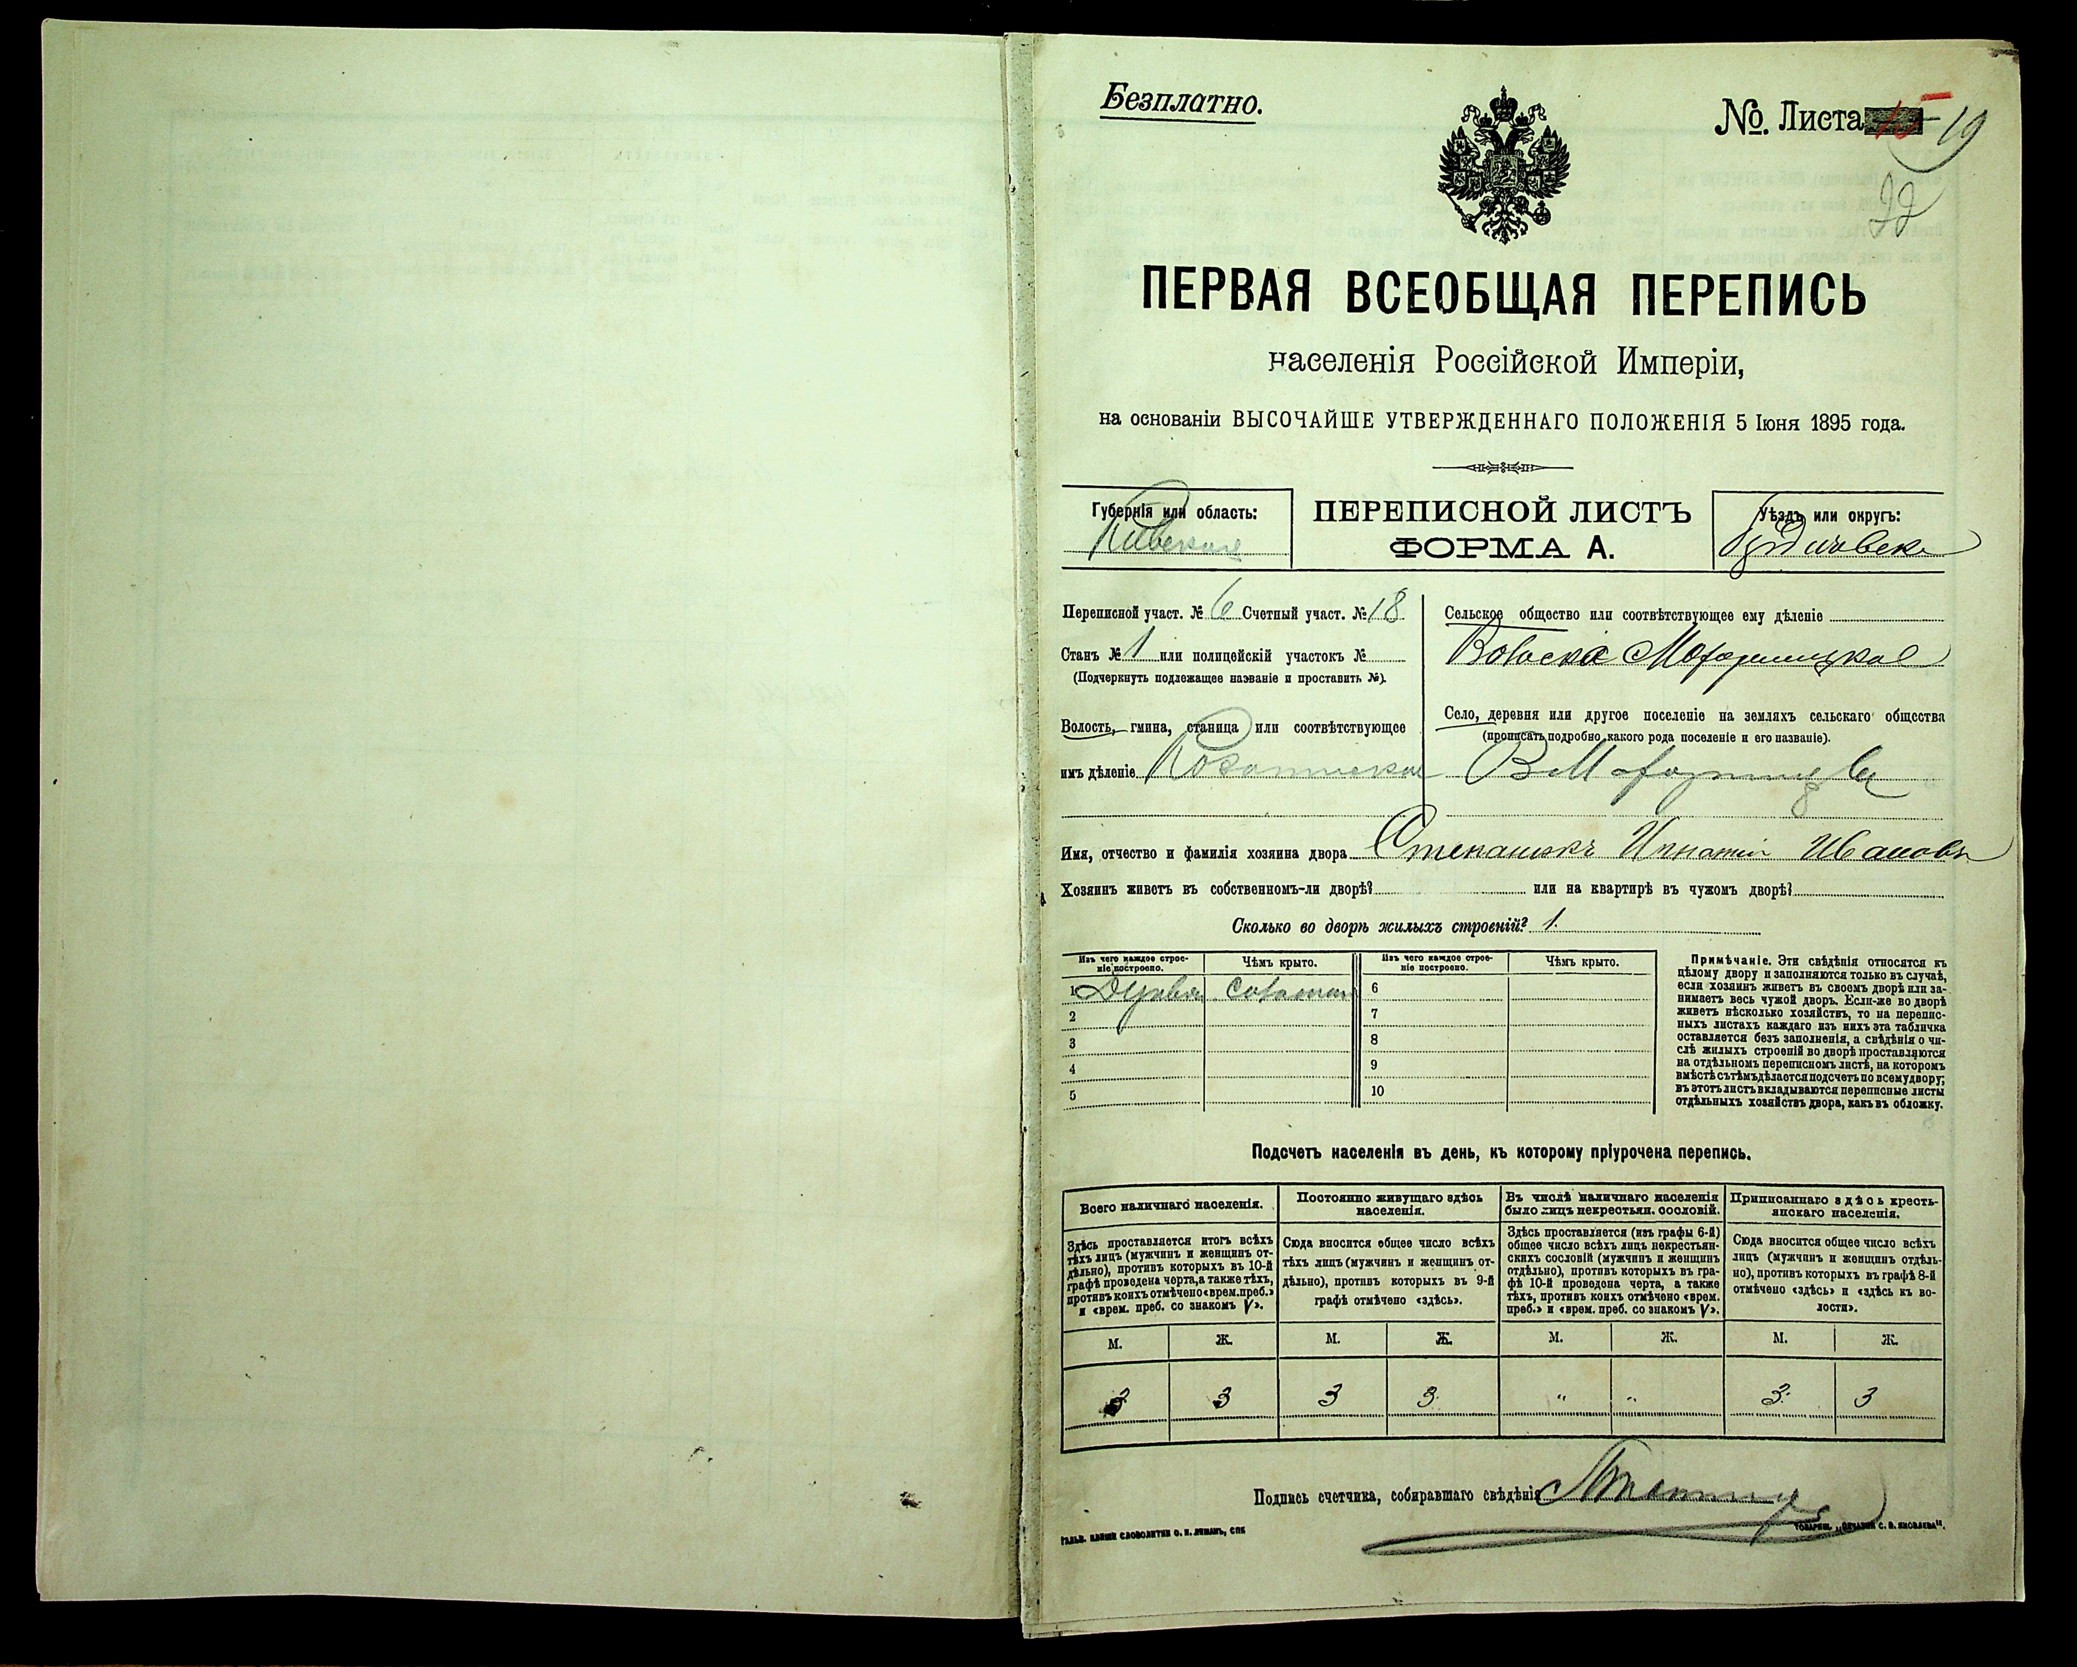 Безплатно.
№. Листа 19
ПЕРВАЯ ВСЕОБЩАЯ ПЕРЕПИСЬ
населенія Россійской Имперіи,
на основаніи ВЫСОЧАЙШЕ УТВЕРЖДЕННАГО ПОЛОЖЕНІЯ 5 Іюня 1895 года.
Губернія или область:
Киевская
ПЕРЕПИСНОЙ ЛИСТЪ
ФОРМА А.
Уѣздъ или округъ:
Переписной участ. № 6 Счетный участ. № 18
Станъ № 1 или полицейскій участокъ №
(Подчеркнуть подлежащее названіе и проставить №).
Волость, гмина, станица или соотвѣтствующее
имъ дѣленіе
Сельское общество или соотвѣтствующее ему дѣленіе
Село, деревня или другое поселеніе на земляхъ сельскаго общества
(прописать подробно какого рода поселеніе и его названіе).
Имя, отчество и фамилія хозяина двора Степанюкъ Игнатій Ивановъ
Хозяинъ живетъ въ собственномъ-ли дворѣ? или на квартирѣ въ чужомъ дворѣ?
Сколько во дворѣ жилыхъ строеній? 1.
Изъ чего каждое строе-
ніе построено.
Чѣмъ крыто.
Изъ чего каждое строе-
ніе построено.
Чѣмъ крыто.
1
2
3
4
5
6
7
8
9
10
Примѣчаніе. Эти свѣдѣнія относятся къ
цѣлому двору и заполняются только въ случаѣ,
если хозяинъ живетъ въ своемъ дворѣ или за-
нимаетъ весь чужой дворъ. Если-же во дворѣ
живетъ нѣсколько хозяйствъ, то на перепис-
ныхъ листахъ каждаго изъ нихъ эта табличка
оставляется безъ заполненія, а свѣдѣнія о чи-
слѣ жилыхъ строеній во дворѣ проставляются
на отдѣльномъ переписномъ листѣ, на которомъ
вмѣстѣ съ тѣмъ дѣлается подсчетъ по всему двору;
въ этотъ листъ вкладываются переписные листы
отдѣльныхъ хозяйствъ двора, какъ въ обложку.
Подсчетъ населенія въ день, къ которому пріурочена перепись.
Всего наличнаго населенія.
Здѣсь проставляется итогъ всѣхъ
тѣхъ лицъ (мужчинъ и женщинъ от-
дѣльно), противъ которыхъ въ 10-й
графѣ проведена черта, а также тѣхъ,
противъ коихъ отмѣчено «врем. преб.»
и «врем. преб. со знакомъ V».
Постоянно живущаго здѣсь
населенія.
Сюда вносится общее число всѣхъ
тѣхъ лицъ (мужчинъ и женщинъ от-
дѣльно), противъ которыхъ въ 9-й
графѣ отмѣчено «здѣсь».
Въ числѣ наличнаго населенія
было лицъ некрестьян. сословій.
Здѣсь проставляется (изъ графы 6-й)
общее число всѣхъ лицъ некрестьян-
скихъ сословій (мужчинъ и женщинъ
отдѣльно), противъ которыхъ въ гра-
фѣ 10-й проведена черта, а также
тѣхъ, противъ коихъ отмѣчено «врем.
преб.» и «врем. преб. со знакомъ V».
Приписаннаго здѣсь кресть-
янскаго населенія.
Сюда вносится общее число всѣхъ
лицъ (мужчинъ и женщинъ отдѣль-
но), противъ которыхъ въ графѣ 8-й
отмѣчено «здѣсь» и «здѣсь къ во-
лости».
М. Ж. М. Ж. М. Ж. М. Ж.
3 3 3 3 " " 3 3
Подпись счетчика, собиравшаго свѣдѣнія
Гальв. клише словолитни О. И. Леманъ, СПБ
Товарищ. „Печатня С. П. Яковлева".